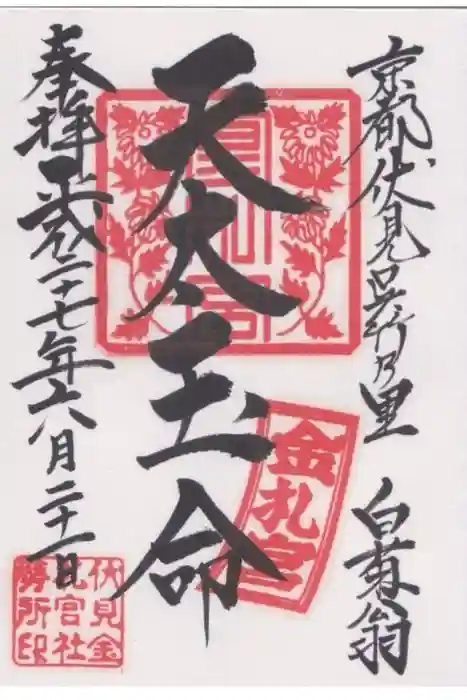 京都伏見呉竹乃里 白菊翁
天太玉命
金札宮
奉拝 平成二十七年六月二十一日
伏見金
札宮社
務所印